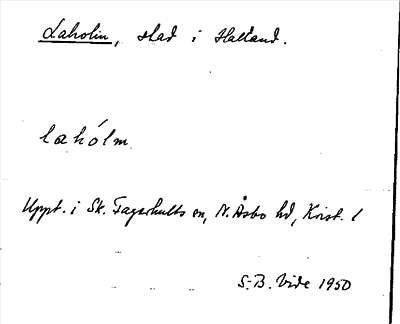 Laholm, stad i Halland.
lahólm
Uppt. i Sk. Fagerhults sn, N. Åsbo hd, Krist. l
S.-B. Vide 1950